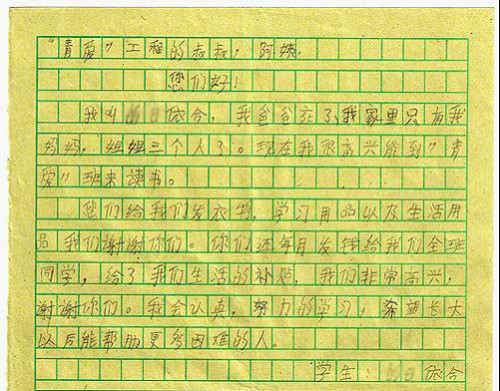 "青爱"工程的叔叔，阿姨.
您们好！
我叫依合，我爸爸了，我家里只有我
妈妈，姐姐三个人了。现在我很高兴能到"青
爱"班来读书。
您们给我们发衣物，学习用品以及生活用
品，我们谢谢你们。你们还每月发钱给我们全班
同学，给了我们生活的补贴，我们非常高兴，
谢谢你们。我会认真，努力的学习，希望长大
以后能帮助更多困难的人。
学生：依合